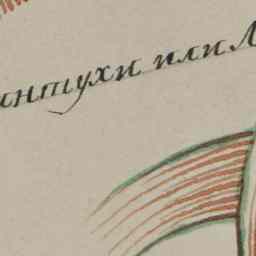 интухи или